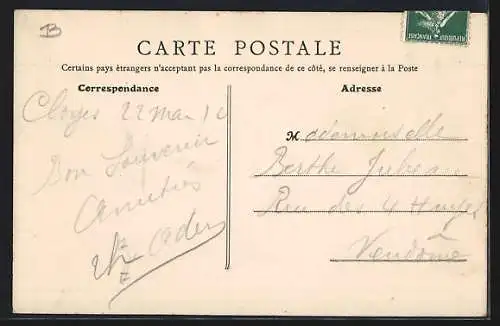 B
CARTE POSTALE
Certains pays étrangers n'acceptant pas la correspondance de ce côté, se renseigner à la Poste
Correspondance
Cloyes 22 Mai 10
Bon Souvenir
Amitiés
Adresse
Mademoiselle
Berthe
Rue des 4
Vendôme
REPUBLIQUE FRANÇAISE